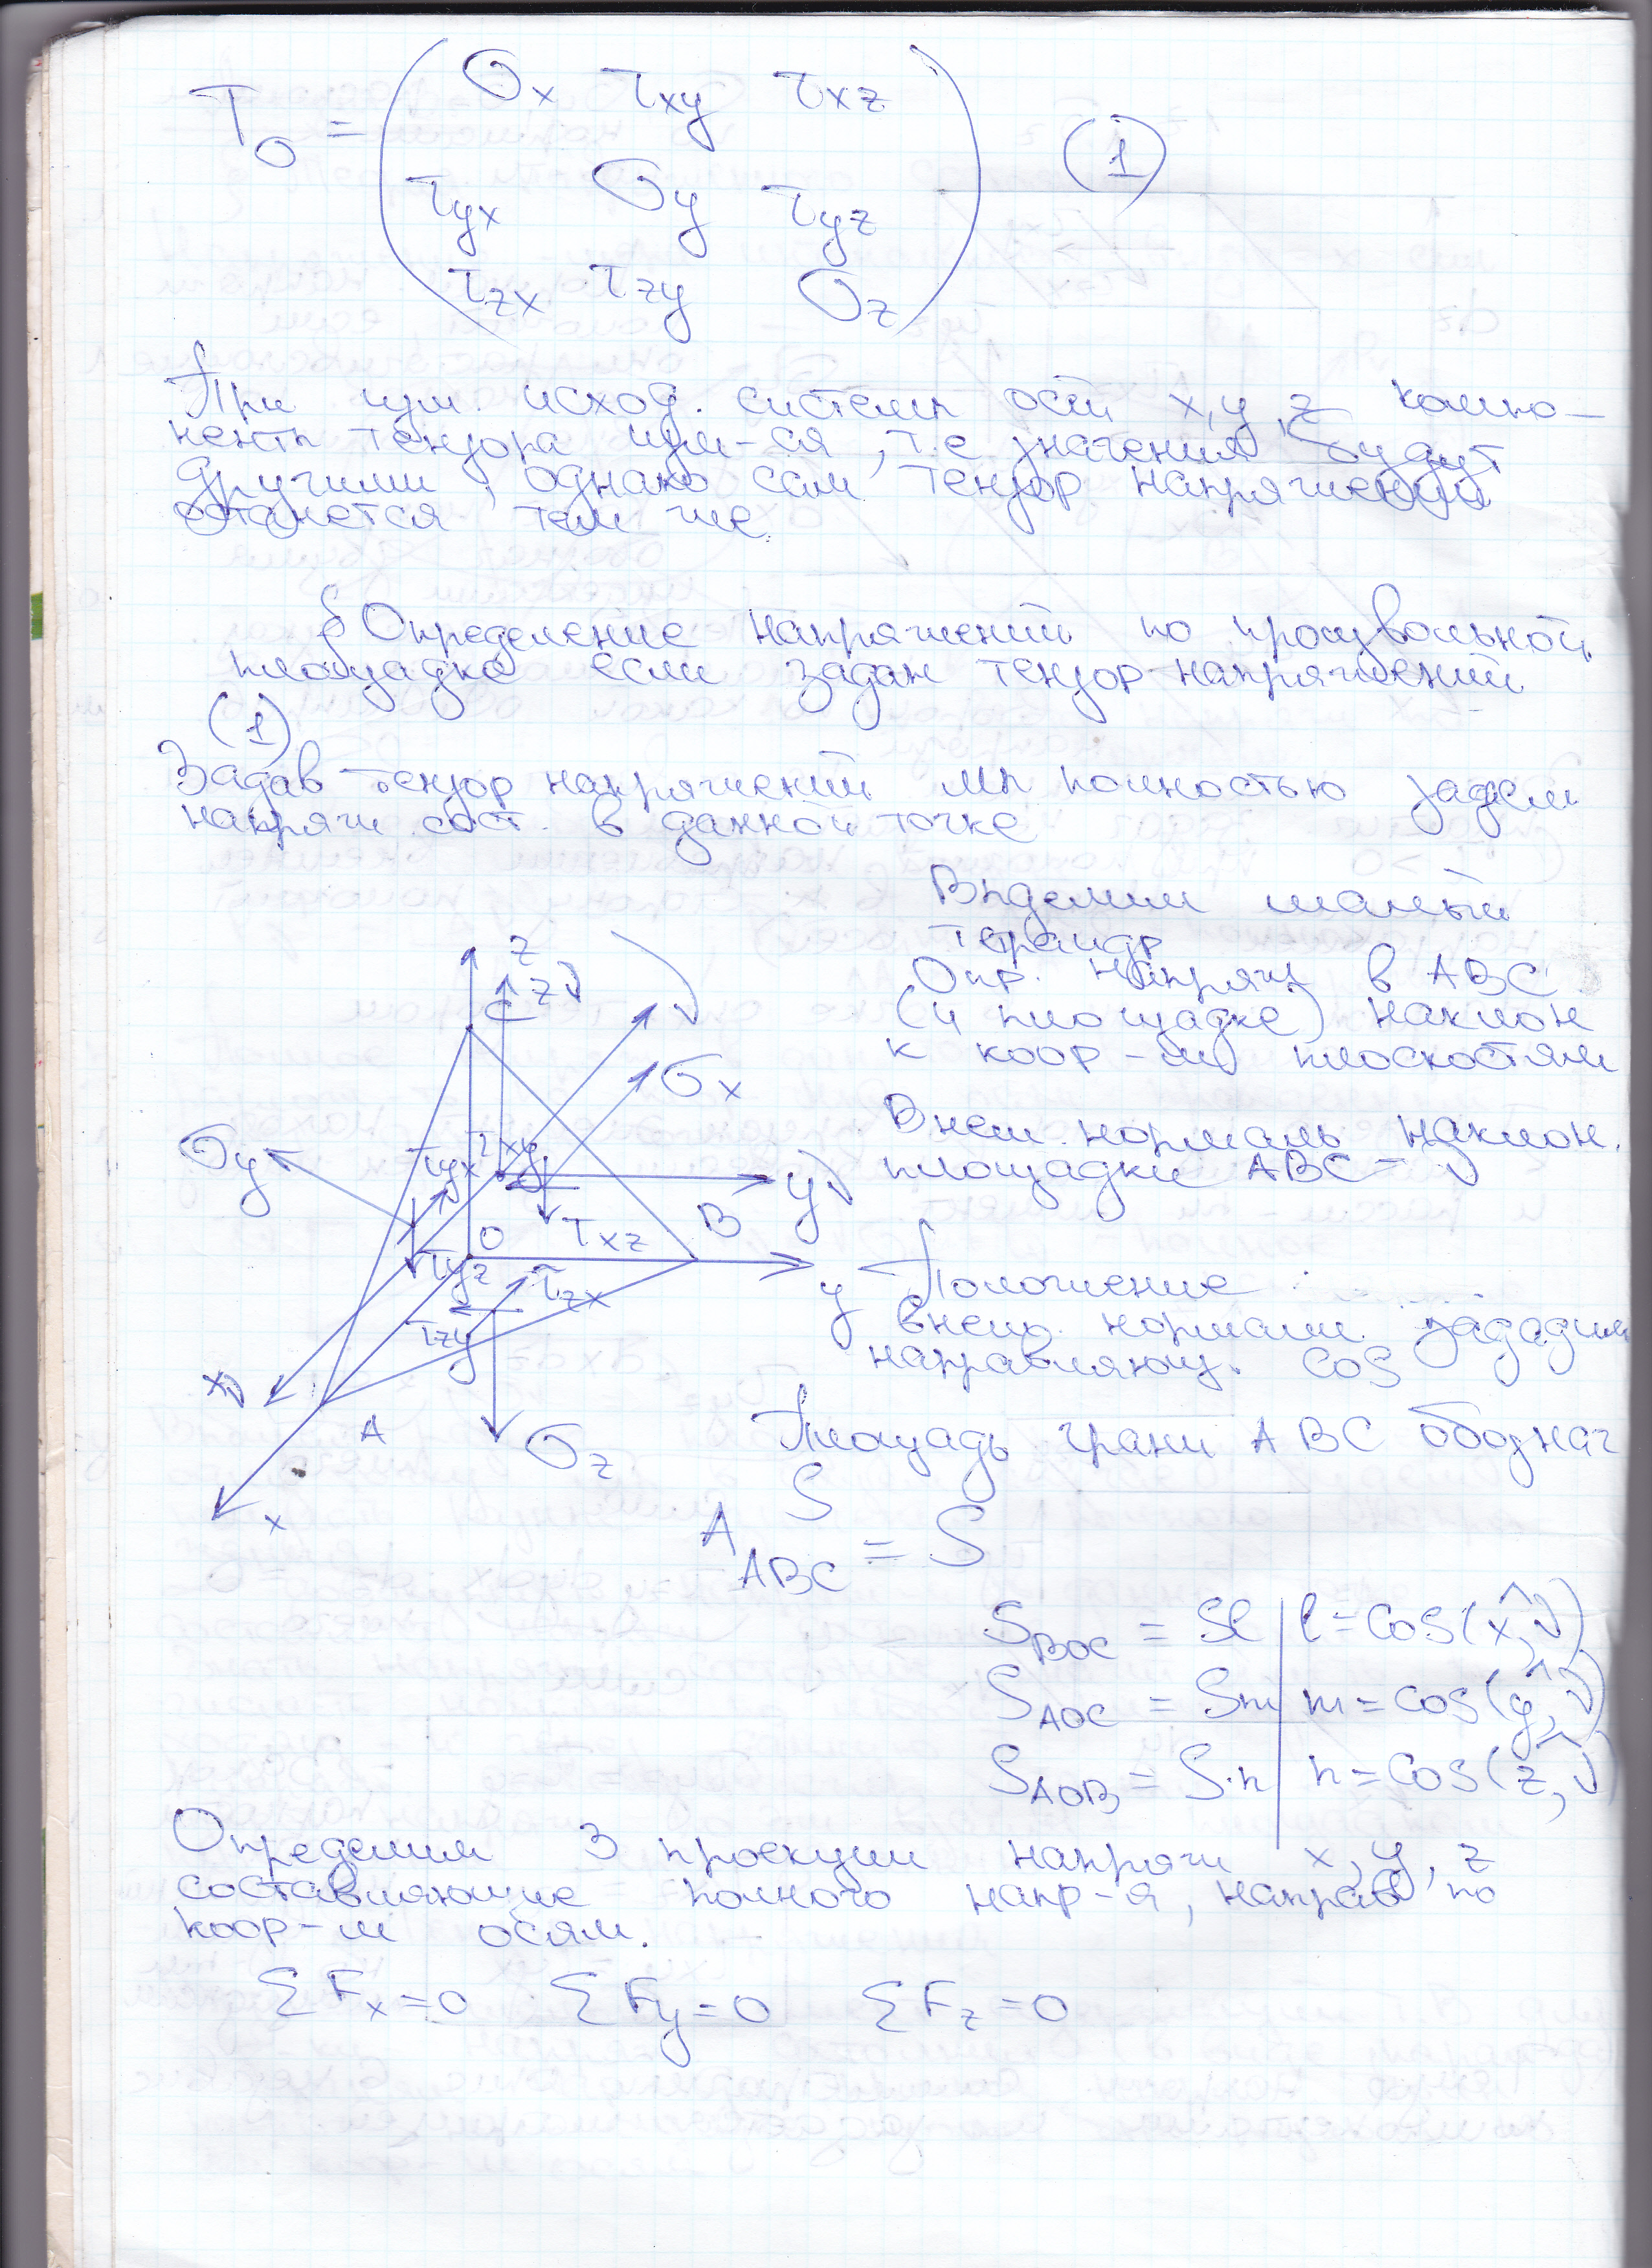 T_σ = ( σx τxy τxz
τyx σy τyz
τzx τzy σz ) (1)
При изм. исход. системы осей x, y, z компо-
ненты тензора изм-ся, т.е значения будут
другими, однако сам тензор напряжений
останется тем же.
§ Определение напряжений по произвольной
площадке если задан тензор напряжений
(1)
Задав тензор напряжений мы полностью задем
напряж. сост. в данной точке
Выделим малый
тетраидр
Опр. напряж в ABC
(и площадке) наклон
к коор-м плоскостям
Внеш. нормаль наклон.
площадки ABC - ν
Положение
внеш. нормали зададим
направляющ. cos
z
zν
C
ν
σx
σy
τyx
τxy
yν
B
τxz
O
τyz
τzx
y
τzy
xν
A
σz
x
Площадь грани ABC обознач
S
A_ABC = S
S_BOC = Sl | l = cos(x,^ν)
S_AOC = Sm | m = cos(y,^ν)
S_AOB = S·n | n = cos(z,^ν)
Определим 3 проекции напряж x, y, z
составляющие полного напр-я, направ по
коор-м осям.
ΣFx=0 ΣFy=0 ΣFz=0